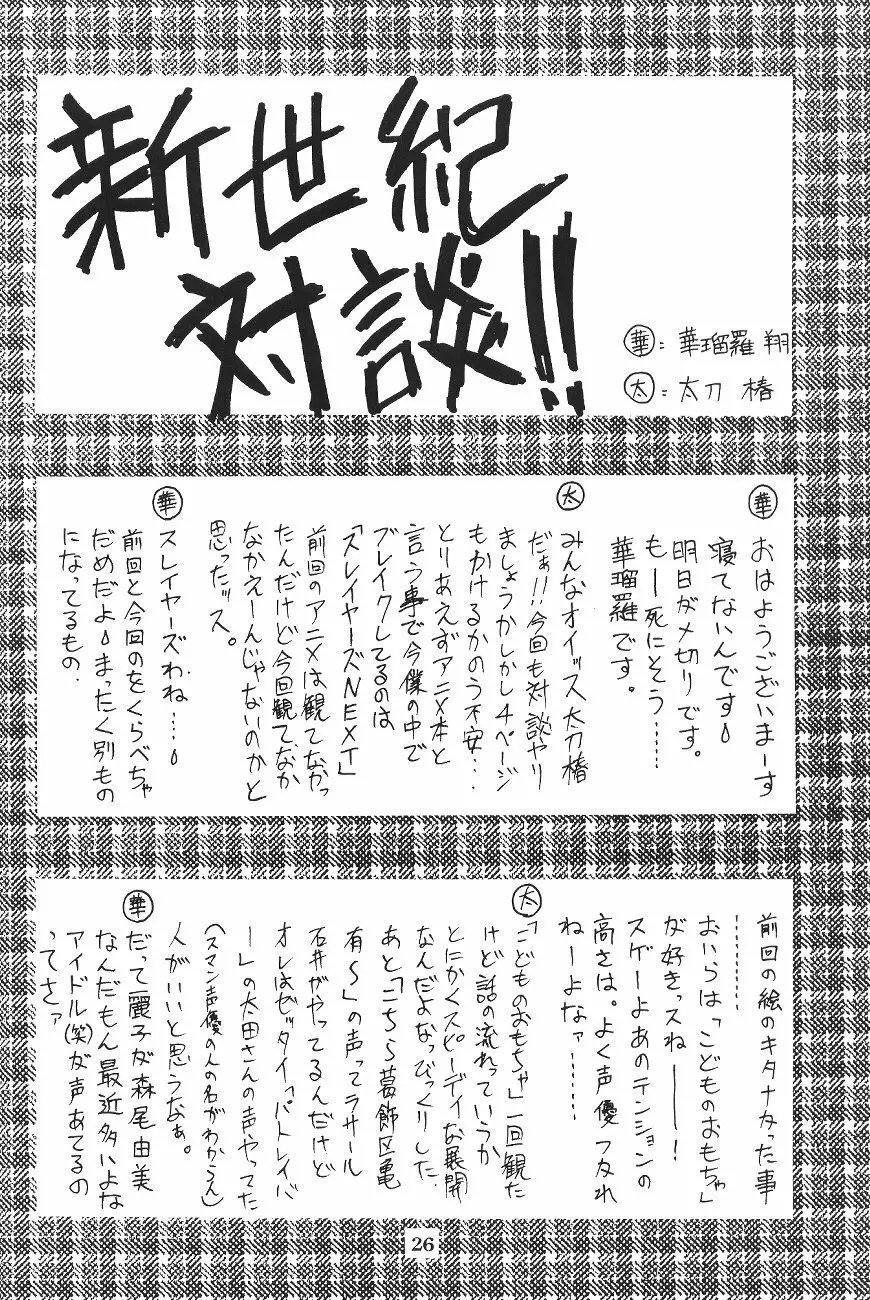 新世紀
対談!!
華：華瑠羅 翔
太：太刀 椿
華
おはようございまーす
寝てないんです
明日が〆切りです。
もー死にそう……
華瑠羅です。
太
みんなオイッス太刀椿
だぁ!!今回も対談ヤリ
ましょうかしかし4ページ
もかけるかのう不安…
とりあえずアニメ本と
言う事で今僕の中で
ブレイクしてるのは
「スレイヤーズNEXT」
前回のアニメは観てなかっ
たんだけど今回観てなか
なかえーんじゃないのかと
思ったッス。
華
スレイヤーズわね…
前回と今回のをくらべちゃ
だめだよまったく別もの
になってるもの.
前回の絵のキタナかった事
………
おいらは「こどものおもちゃ」
が好きっスね——!
スゲーよあのテンションの
高さは。よく声優つぶれ
ねーよなァ……
太
「こどものおもちゃ」一回観た
けど話の流れっていうか
とにかくスピーディな展開
なんだよなっびっくりした.
あと「こちら葛飾区亀
有〜」の声ってラサール
石井がやってるんだけど
オレはゼッタイ「パトレイバ
ー」の太田さんの声やってた
人がいいと思うなぁ。
(スマン声優の人の名がわからん)
華
だって麗子が森尾由美
なんだもん最近多いよな
アイドル(笑)が声あてるの
ってさァ
26